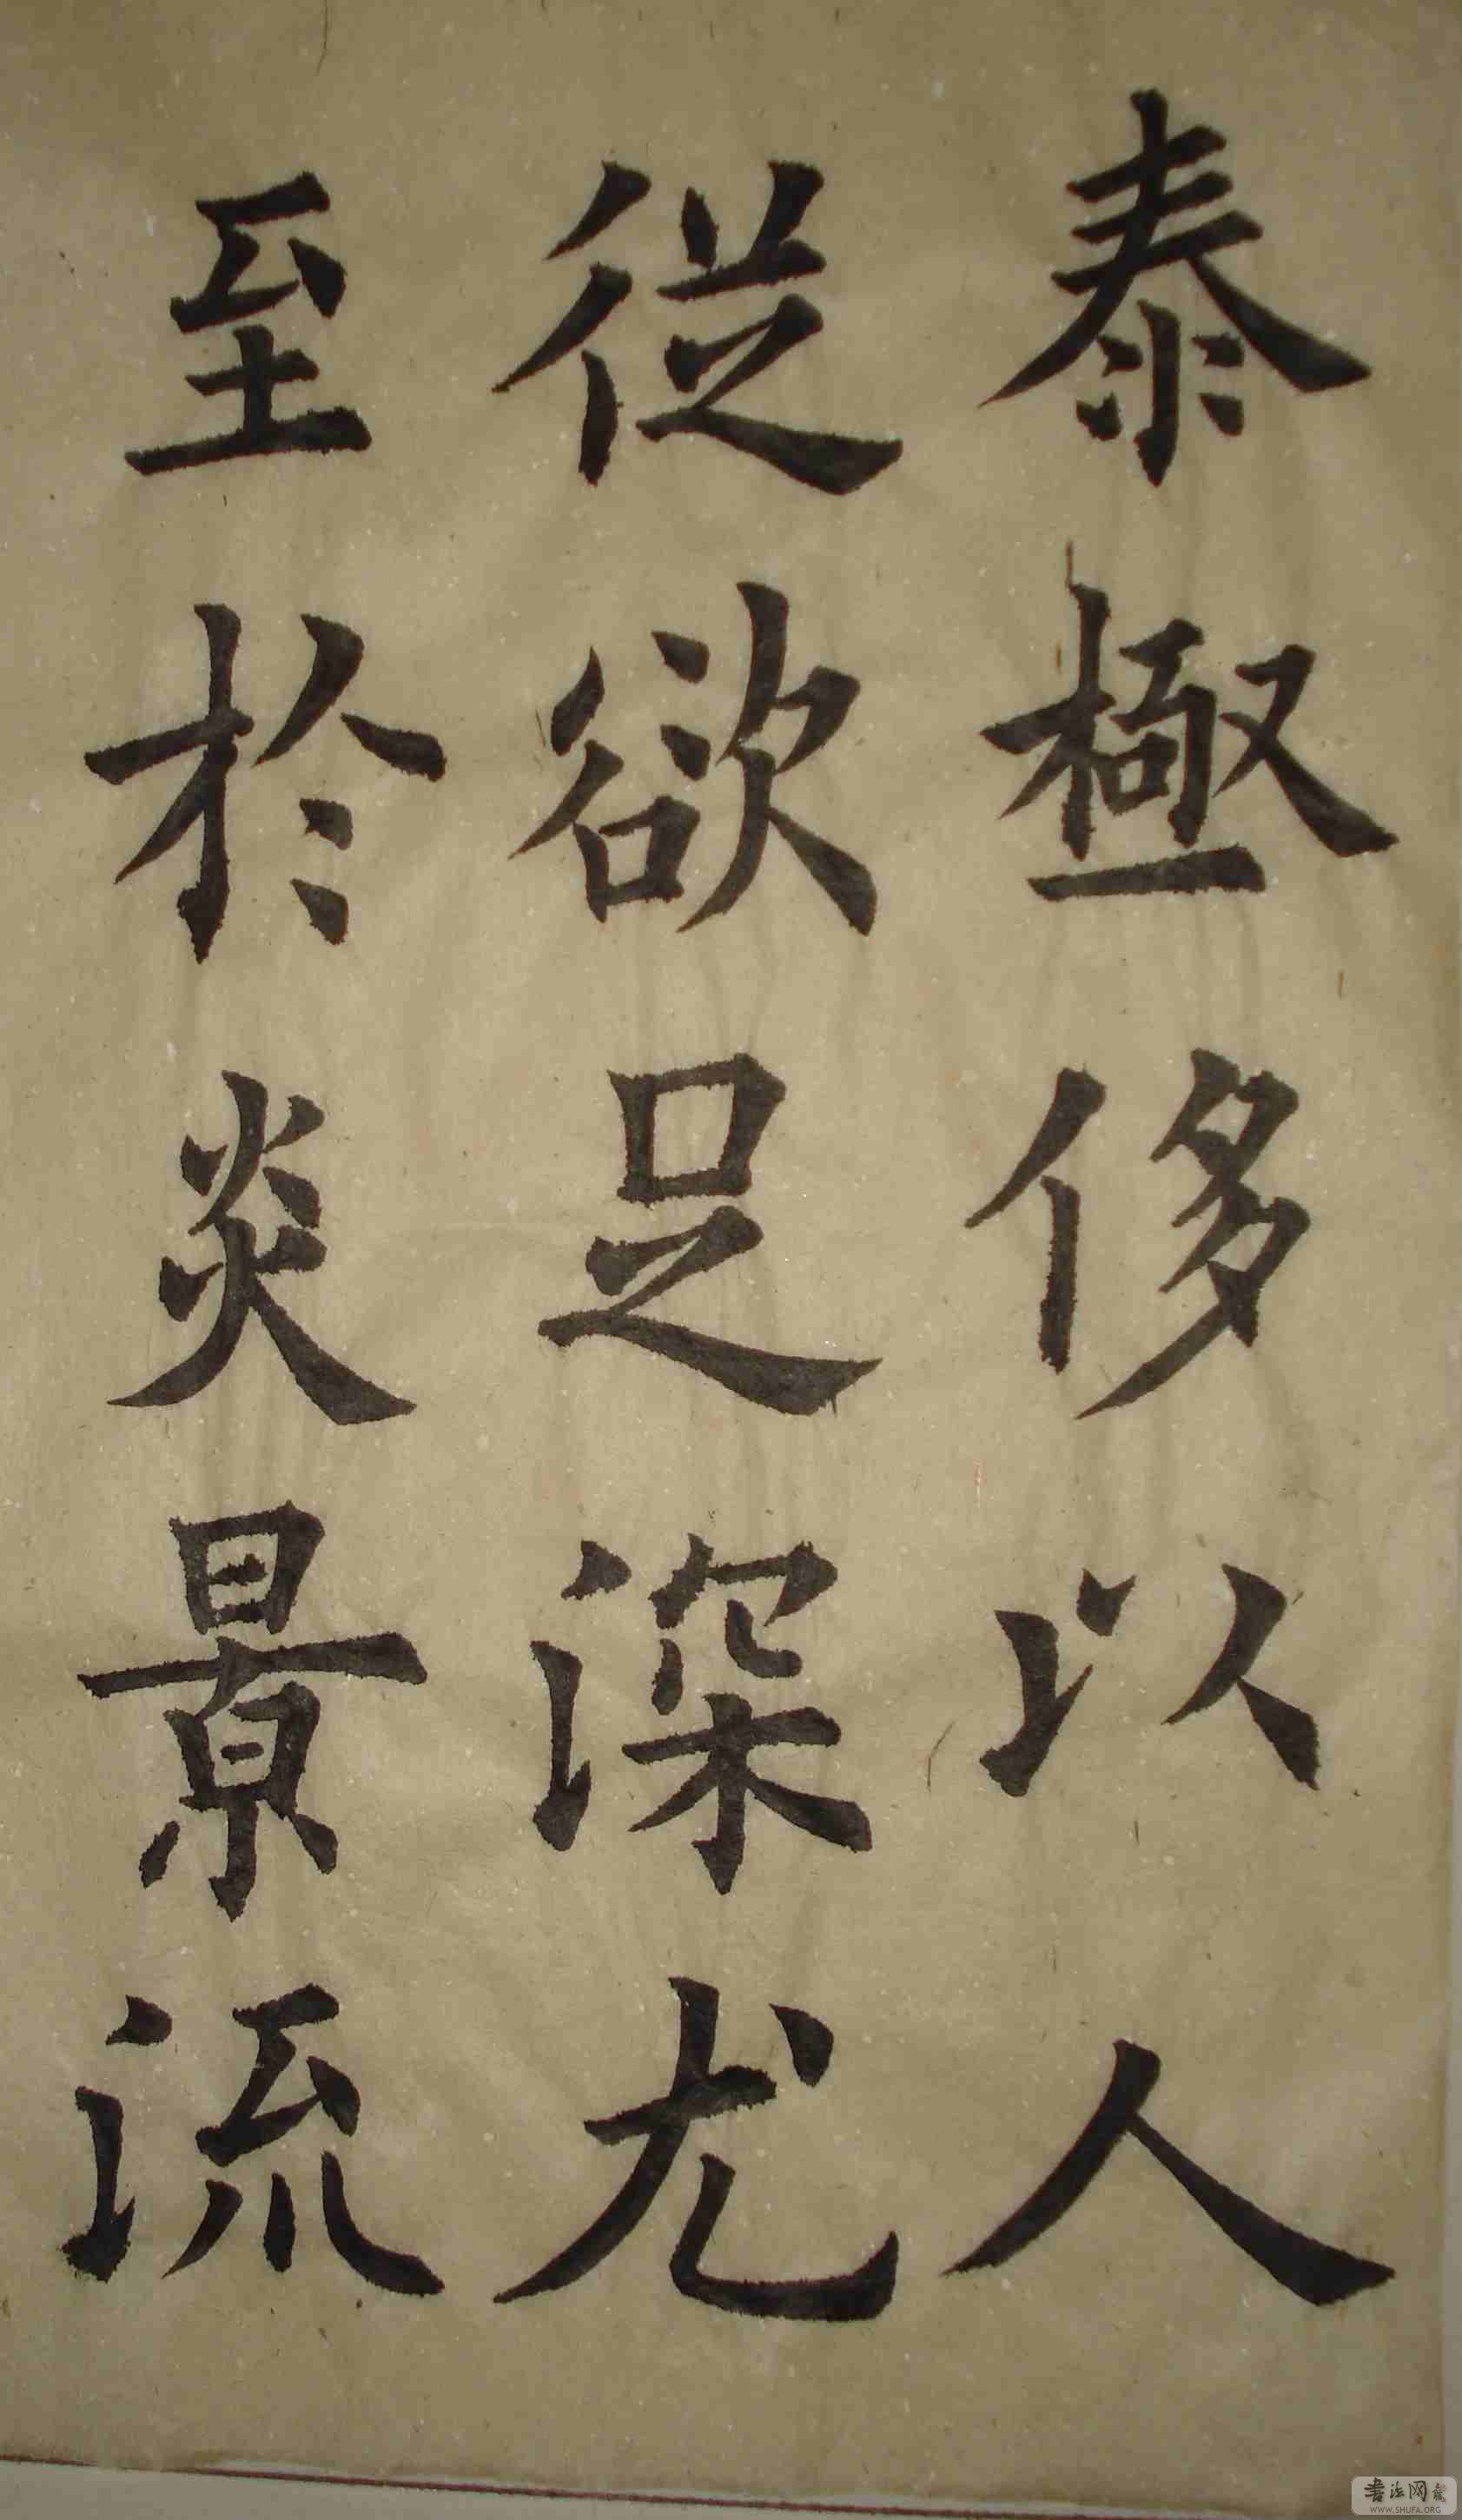 泰極侈以人
従欲足深尤
至於炎景流
書法网
WWW.SHUFA.ORG